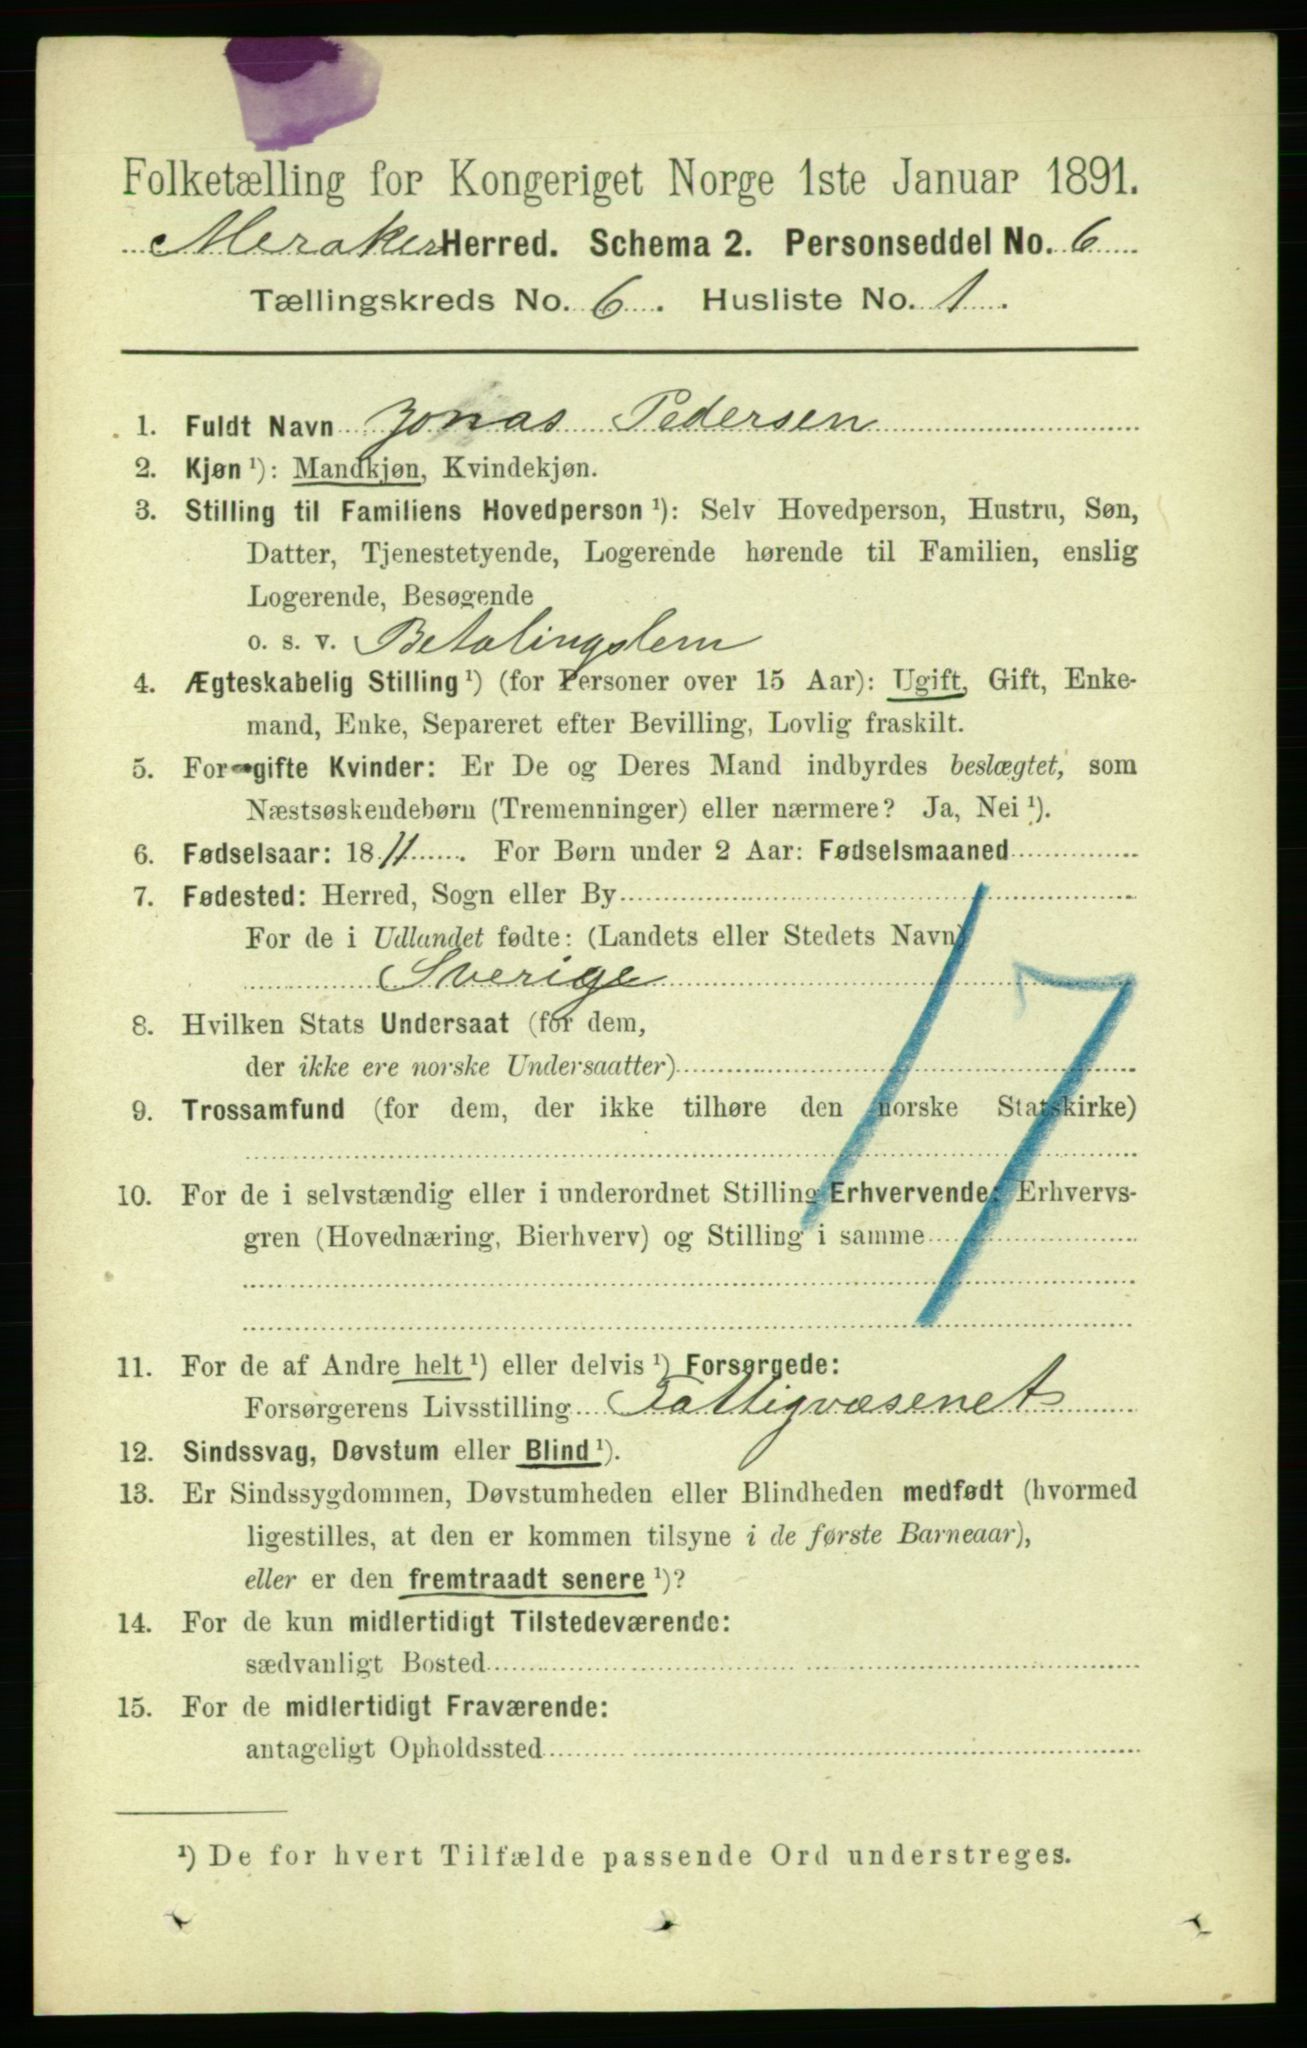 Folketælling for Kongeriget Norge 1ste Januar 1891.
Meraker Herred. Schema 2. Personseddel No. 6
Tællingskreds No. 6. Husliste No. 1.
1. Fuldt Navn Jonas Pedersen
2. Kjøn ¹): Mandkjøn, Kvindekjøn.
3. Stilling til Familiens Hovedperson ¹): Selv Hovedperson, Hustru, Søn,
Datter, Tjenestetyende, Logerende hørende til Familien, enslig
Logerende, Besøgende
o. s. v. Betalingslem
4. Ægteskabelig Stilling ¹) (for Personer over 15 Aar): Ugift, Gift, Enke-
mand, Enke, Separeret efter Bevilling, Lovlig fraskilt.
5. For gifte Kvinder: Er De og Deres Mand indbyrdes beslægtet, som
Næstsøskendebørn (Tremenninger) eller nærmere? Ja, Nei ¹).
6. Fødselsaar: 1811. For Børn under 2 Aar: Fødselsmaaned
7. Fødested: Herred, Sogn eller By
For de i Udlandet fødte: (Landets eller Stedets Navn)
Sverige
17
8. Hvilken Stats Undersaat (for dem,
der ikke ere norske Undersaatter)
9. Trossamfund (for dem, der ikke tilhøre den norske Statskirke)
10. For de i selvstændig eller i underordnet Stilling Erhvervende: Erhvervs-
gren (Hovednæring, Bierhverv) og Stilling i samme
11. For de af Andre helt ¹) eller delvis ¹) Forsørgede:
Forsørgerens Livsstilling Fattigvæsenet
12. Sindssvag, Døvstum eller Blind ¹).
13. Er Sindssygdommen, Døvstumheden eller Blindheden medfødt (hvormed
ligestilles, at den er kommen tilsyne i de første Barneaar),
eller er den fremtraadt senere ¹)?
14. For de kun midlertidigt Tilstedeværende:
sædvanligt Bosted
15. For de midlertidigt Fraværende:
antageligt Opholdssted
¹) De for hvert Tilfælde passende Ord understreges.